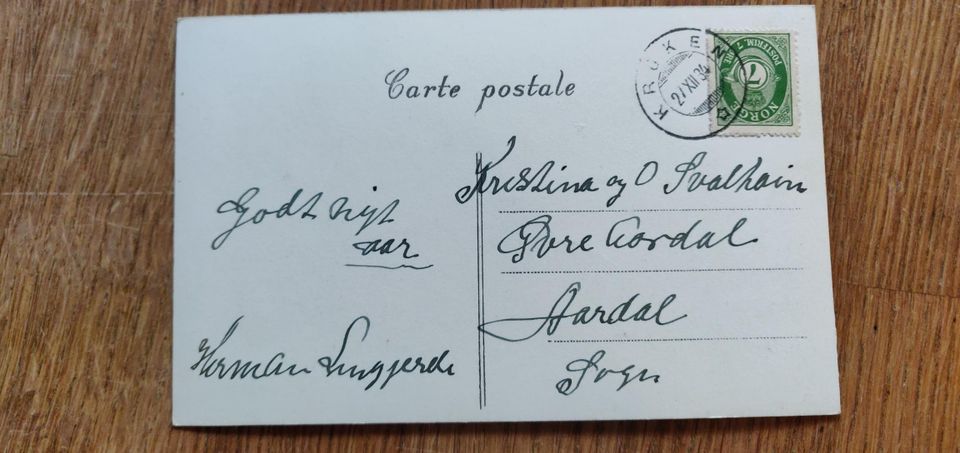 Carte postale
KROKEN
27 XII 34
POSTFRIM. 7
7
NORGE
Godt nyt
aar
Herman
Kristina og O Svalheim
Øvre Aardal
Aardal
Sogn